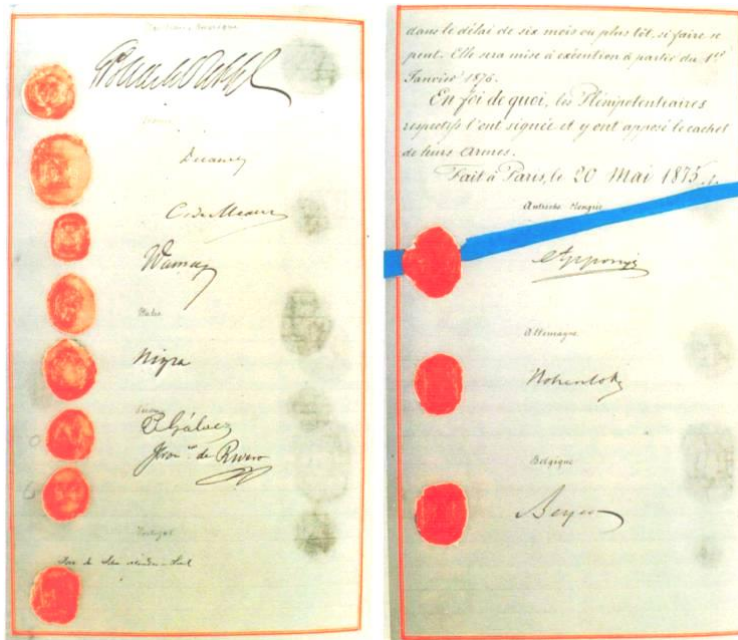 Decazes
C. de Meaux
Dumas
Italie
Nigra
P. Gálvez
Fran.co de Rivero
Portugal
José da Silva Mendes Leal
dans le délai de six mois ou plus tôt, si faire se
peut. Elle sera mise à exécution à partir du 1er
Janvier 1876.
En foi de quoi, les Plénipotentiaires
respectifs l'ont signée et y ont apposé le cachet
de leurs Armes.
Fait à Paris, le 20 Mai 1875.
Autriche-Hongrie
Apponyi
Allemagne
Hohenlohe
Belgique
Beyens